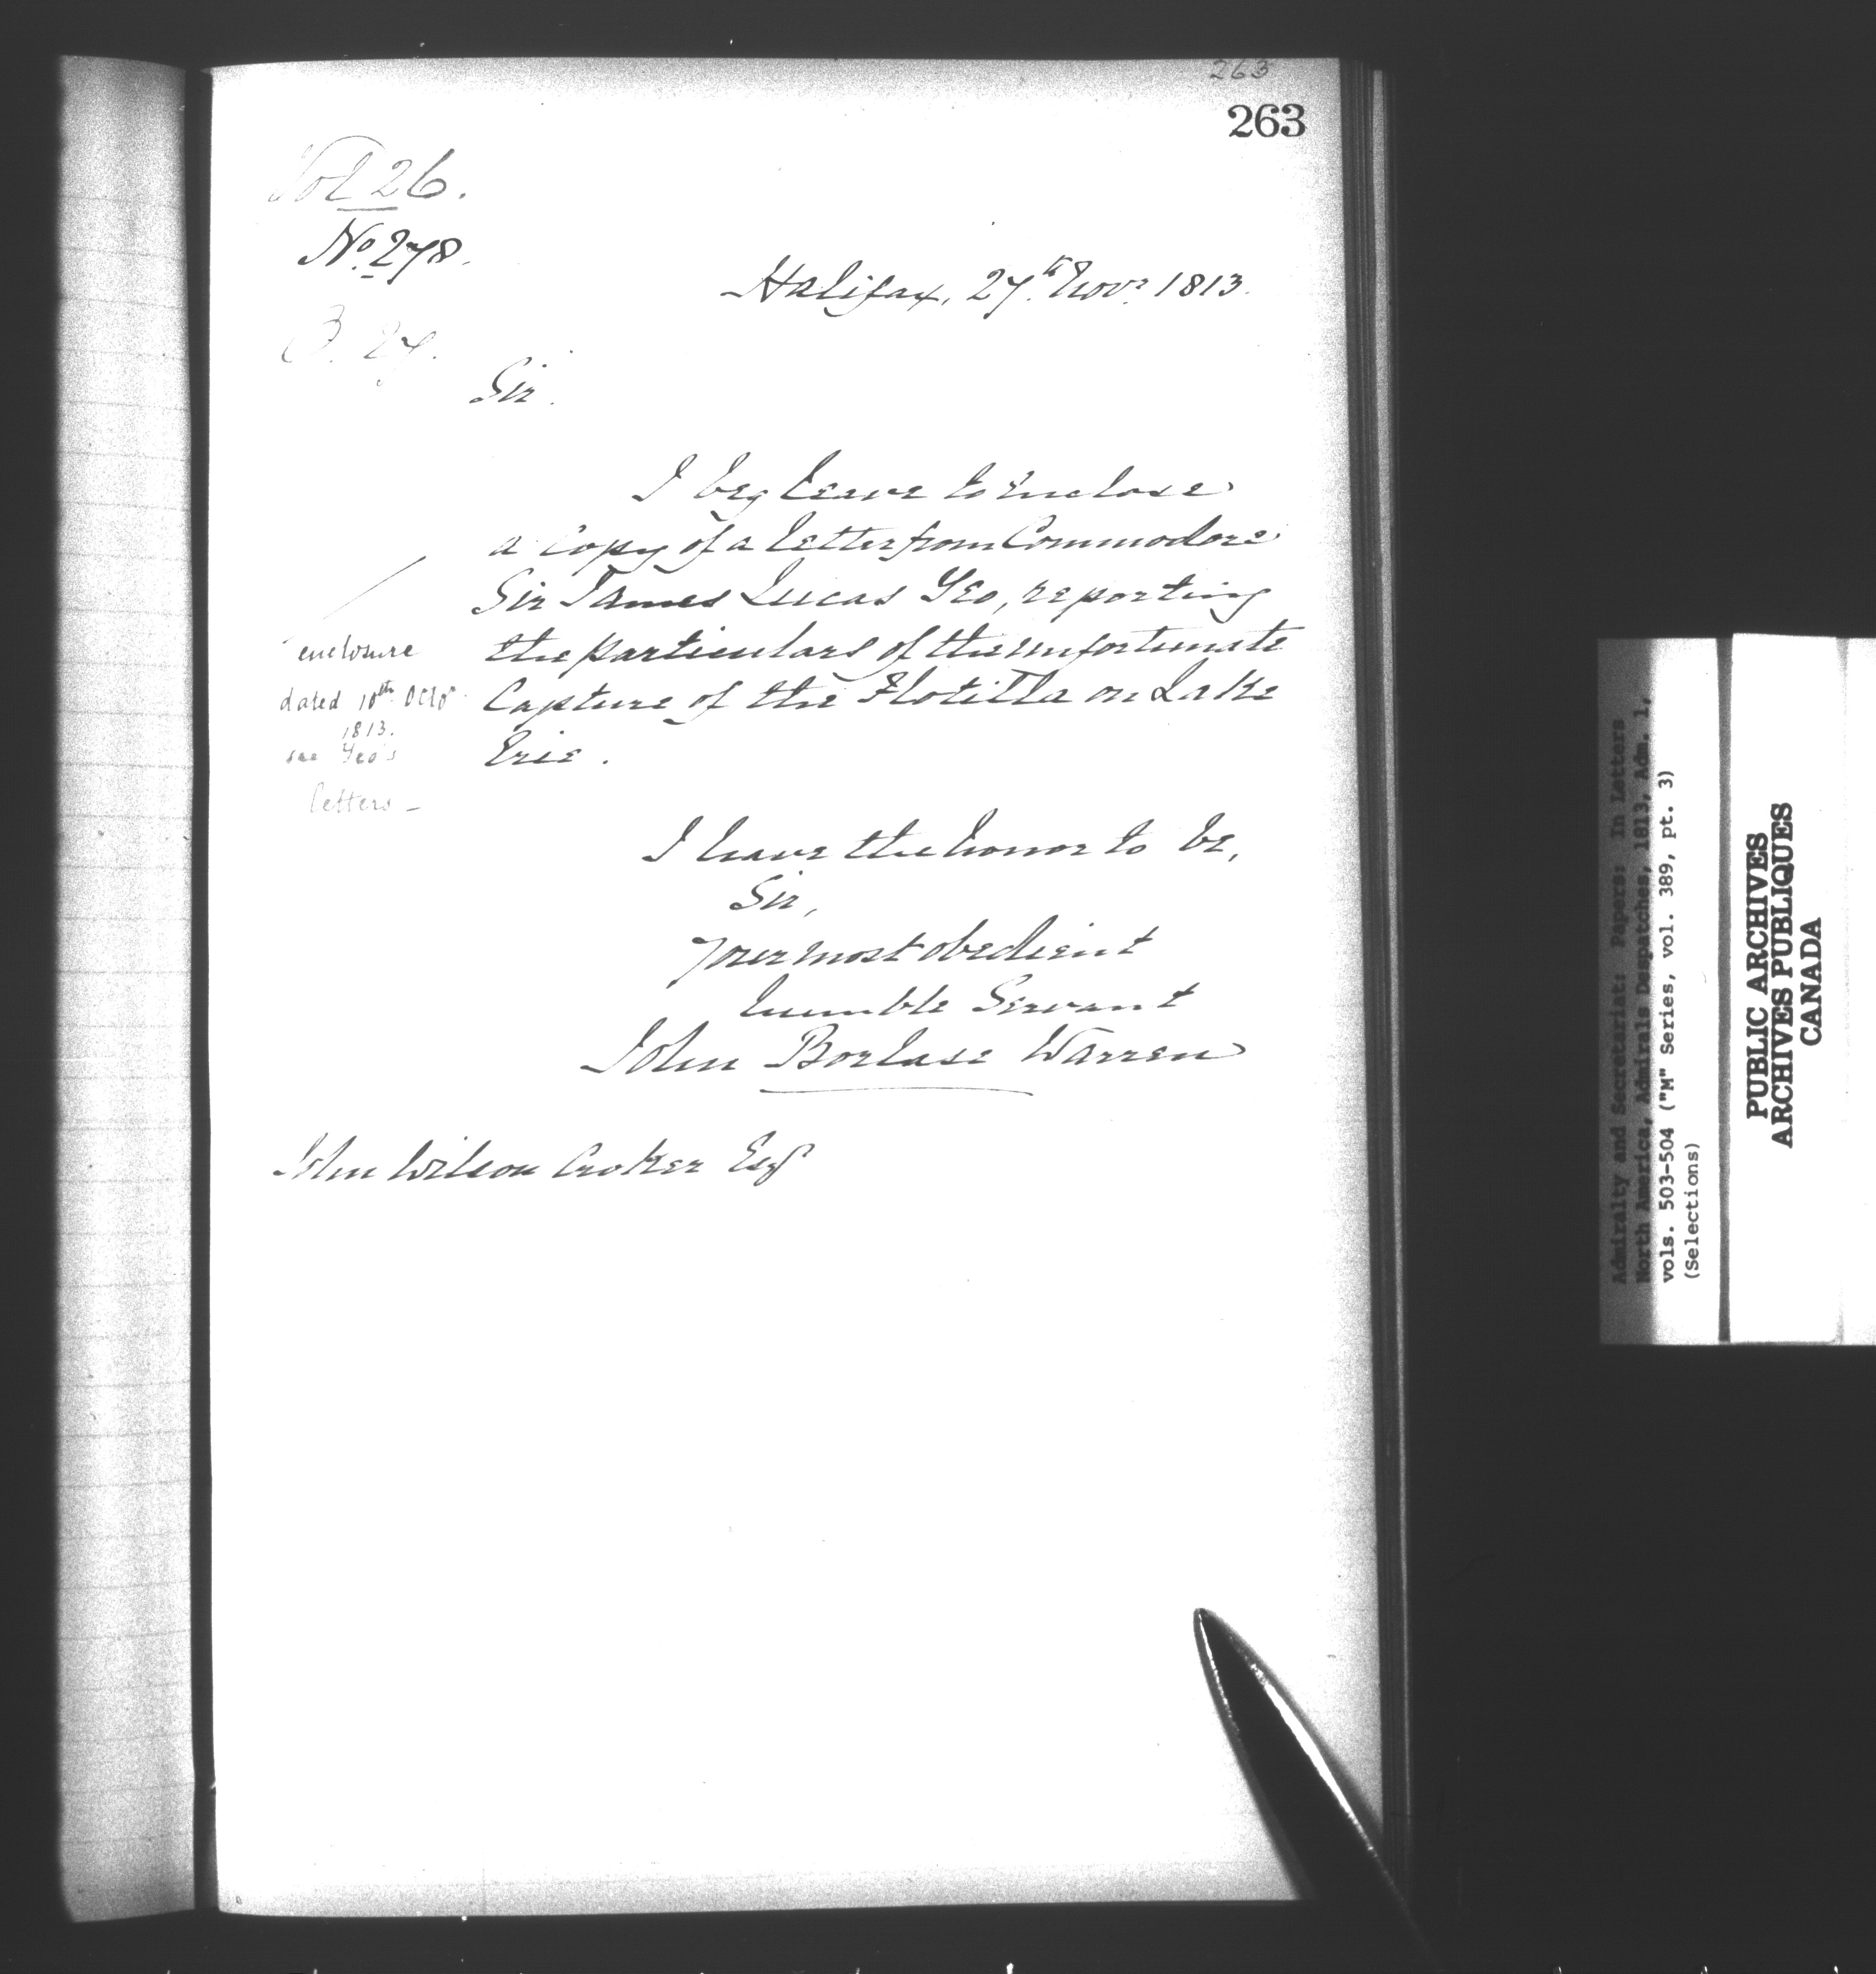 263
263
Vol 26.
No. 278.
Halifax, 27th Novr. 1813.
Sir.
I beg leave to Enclose
a Copy of a letter from Commodore
Sir James Lucas Yeo, reporting
the particulars of the unfortunate
Capture of the Flotilla on Lake
Erie.
enclosure
dated 10th Octor.
1813.
see Yeo's
letters –
I have the honor to be,
Sir,
your most obedient
humble Servant
John Borlase Warren
John Wilson Croker Esqr
Admiralty and Secretariat: Papers: In Letters
North America, Admirals Despatches, 1813, Adm. 1,
vols. 503-504 ("M" Series, vol. 389, pt. 3)
(Selections)
PUBLIC ARCHIVES
ARCHIVES PUBLIQUES
CANADA